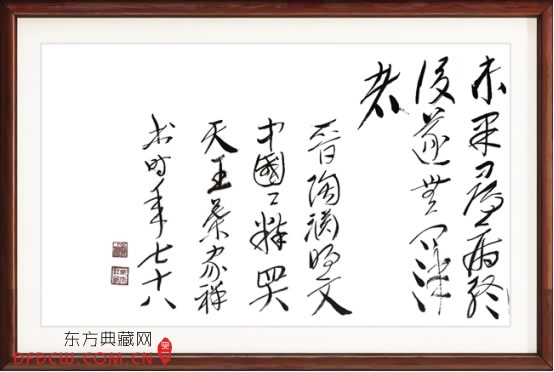 未果尋病終
後遂無問津
者
晋陶渊明文
中國工四大
天王家祥
书时年七十八
东方典藏网
DFDCW.COM.CN